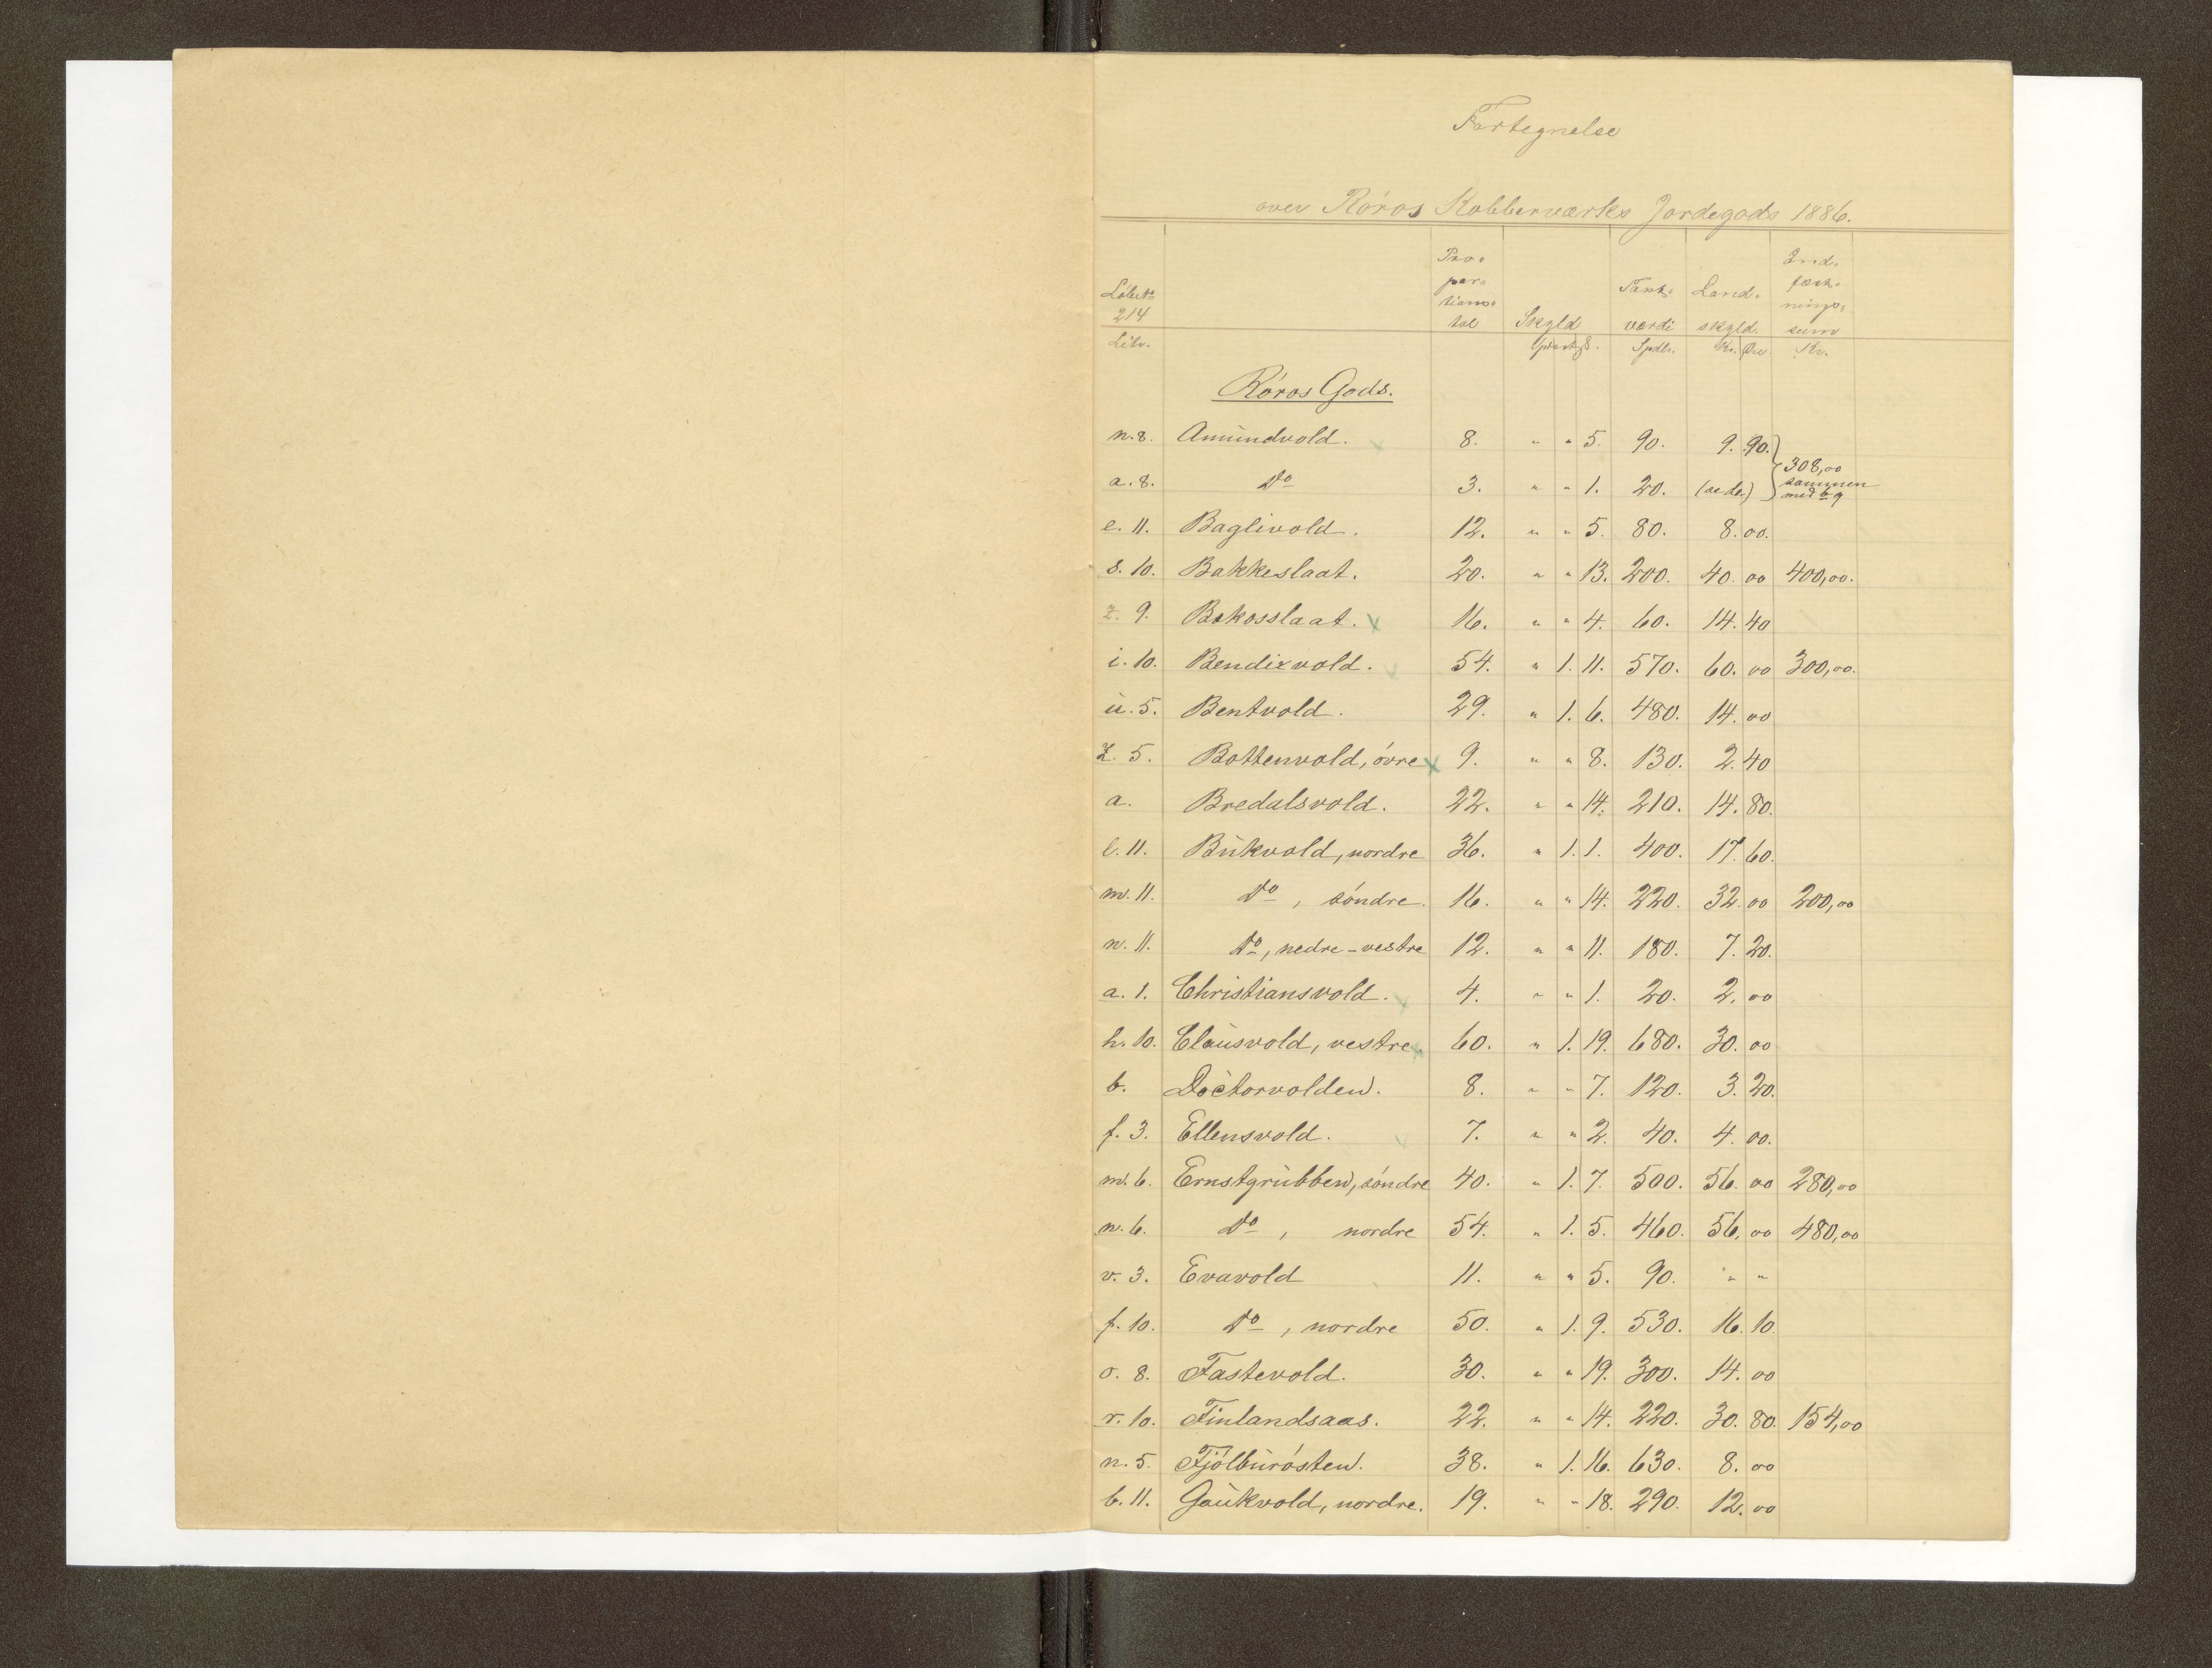 Fortegnelse
over Röros Kobberværks Jordegods 1886.
Löbe№ 214 Litr. Pro= por= tions= tal Skyld Taxt= værdi Spdlr. Land= skyld. Kr. Öre Ind= fæst= nings= sum Kr.
Röros Gods.
n. 8. Amundvold. 8. " " 5. 90. 9. 90.
308,00 sammen med b 9
a. 8. Do 3. " " 1. 20. (øde)
e. 11. Baglivold. 12. " " 5. 80. 8. 00.
s. 10. Bakkeslaat. 20. " " 13. 200. 40. 00 400,00.
z. 9. Bokosslaat. x 16. " " 4. 60. 14. 40
i. 10. Bendixvold. 54. " 1. 11. 570. 60. 00 300,00.
u. 5. Bentvold. 29. " 1. 6. 480. 14. 00
z. 5. Bottenvold, övre x 9. " " 8. 130. 2. 40
a. Bredalsvold. 22. " " 14. 210. 14. 80.
l. 11. Bukvold, nordre 36. " 1. 1. 400. 17. 60.
m. 11. Do , söndre. 16. " " 14. 220. 32. 00 200,00
n. 11. Do, nedre-vestre 12. " " 11. 180. 7. 20.
a. 1. Christiansvold. x 4. " " 1. 20. 2. 00
h. 10. Clausvold, vestre. x 60. " 1. 19. 680. 30. 00
b. Doctorvolden. 8. " " 7. 120. 3. 20.
f. 3. Ellensvold. 7. " " 2. 40. 4. 00.
m. 6. Ernstgrubben, söndre 40. " 1. 7. 500. 56. 00 280,00
n. 6. Do , nordre 54. " 1. 5. 460. 56. 00 480,00
v. 3. Evavold 11. " " 5. 90. " "
f. 10. Do , nordre 50. " 1. 9. 530. 16. 10.
o. 8. Fastevold. 30. " " 19. 300. 14. 00
r. 10. Finlandsaas. 22. " " 14. 220. 30. 80. 154,00
n. 5. Fjölburösten. 38. " 1. 16. 630. 8. 00
b. 11. Gaukvold, nordre. 19. " " 18. 290. 12. 00